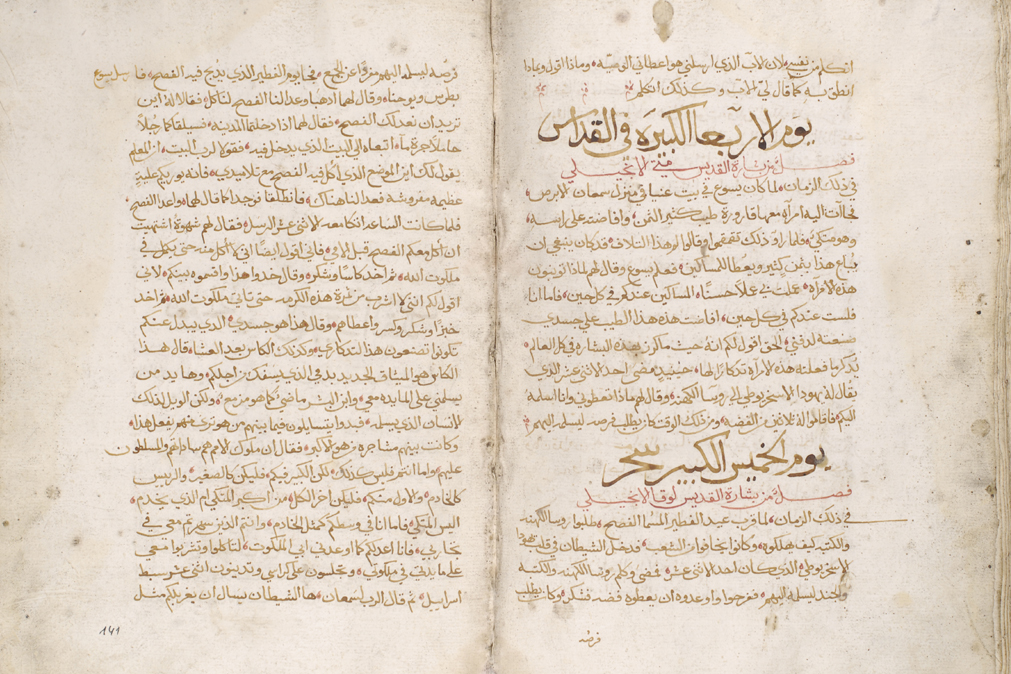 اتكلم من نفسي لان الاب الذي ارسلني هو اعطاني الوصيه وماذا اقول وبماذا
انطق به كما قال لي الاب وكذلك اتكلم
يوم الاربعا الكبيره في القداس
فصل من بشارة القديس متي الانجيلي
في ذلك الزمان لما كان يسوع في بيت عنيا في منزل سمعان الابرص
فجاات اليه امراه معها قارورة طيب كثير الثمن وافاضته علي راسه
وهو متكي فلما راو ذلك تقمقموا وقالوا لم هذا التلاف قد كان ينبغي ان
يباع هذا بثمن كثير ويعطا للمساكين فعلم يسوع وقال لهم لماذا توذون
هذه الامراه عملت بي عملاً حسناً المساكين عندكم في كل حين فاما انا
فلست عندكم في كل حين افاضت هذه هذا الطيب علي جسدي
صنعته لدفني الحق اقول لكم انه حيث ما كرز بهذه البشاره في كل العالم
يذكر ما فعلته هذه الامراه تذكارًا لها حينيذٍ مضي احد الاثني عشر الذي
يقال له يهودا الاسخريوطي الي روسا الكهنه وقال لهم ماذا تعطوني وانا اسلمه
اليكم فاقاموا له ثلاثين من الفضه ومن ذلك الوقت كان يطلب فرصه ليسلمه اليهم
يوم الخميس الكبير سحر
فصل من بشارة القديس لوقا الانجيلي
في ذلك الزمان لما قرب عيد الفطير المسما الفصح طلبوا روسا الكهنه
والكتبه كيف يهلكوه وكانوا يخافوا من الشعب فدخل الشيطان في قلب يهودا
الاسخريوطي الذي كان احد الاثني عشر فمضي وكلم روسا الكهنه والكتبه
والجند ليسلمه اليهم ففرحوا واوعدوه ان يعطوه فضه فشكر وكان يطلب
فرصه
فرصه ليسلمه اليهم مفردًا عن الجمع فجا يوم الفطير الذي يذبح فيه الفصح فارسل يسوع
بطرس ويوحنا وقال لهما اذهبا واعدا لنا الفصح لناكل فقالا له اين
تريد ان نعد لك الفصح فقال لهما اذا دخلتما المدينه فسيلقاكما رجلاً
حاملاً جرة ما اتبعاه الي البيت الذي يدخل فيه فقولا لرب البيت ان المعلم
يقول لك اين الموضع الذي اكل فيه الفصح مع تلاميذي فانه يوريكم عليةٍ
عظيمه مفروشه فعدا لنا هناك فانطلقا فوجدا كما قال لهما واعدا الفصح
فلما كانت الساعه اتكا معه الاثني عشر الرسل فقال لهم شهوة اشتهيت
ان اكل معكم الفصح قبل الامي فاني اقول ايضًا انني لا اكل منه حتي يكمل في
ملكوت الله ثم اخذ كاسًا وشكر وقال خذوا هذا واقتسموه بينكم لانني
اقول لكم انني لا اشرب من ثمرة هذه الكرمه حتي ياتي ملكوت الله واخذ
خبزًا وشكر وكسر واعطاهم وقال هذا هو جسدي الذي يبذل عنكم
تكونوا تصنعون هذا لتذكاري وكذلك الكاس بعد العشا قال هذا
الكاس هو الميثاق الجديد بدمي الذي يسفك من اجلكم وها يد من
يسلمني علي المايده معي وابن البشر ماضي كما هو مزمع ولكن الويل لذلك
الانسان الذي يسلمه فبدوا يتسايلون فيما بينهم من هو تري منهم يفعل هذا
وكانت بينهم مشاجره من هو الاكبر فقال ان ملوك الامم هم ساداتهم والمسلطون
عليهم واما انتم فليس كذلك لكن الكبير فيكم فليكن كالصغير والرييس
كالخادم والاول منكم فليكن اخر الكل من اكبر المتكي ام الذي يخدم
اليس المتكي فاما انا في وسطكم كمثل الخادم وانتم الذين صبرتم معي في
تجاربي فانا اعدكم كما اوعدني ابي الملكوت لتاكلوا وتشربوا معي
علي مايدتي في ملكوتي وتجلسون علي كراسي وتدينون اثني عشر سبط
اسراييل ثم قال الرب لسمعان ها الشيطان يسال ان يغربلكم مثل
141